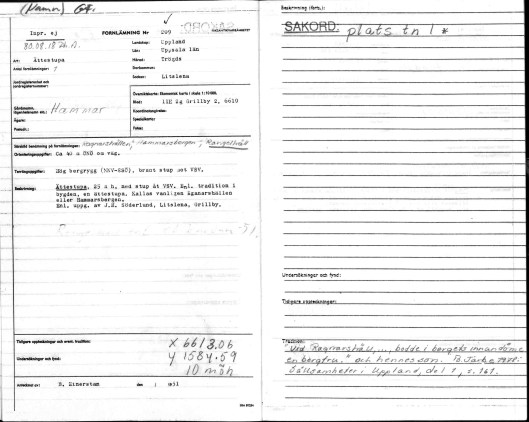 (Namn) Gf.
Inpr. ej
80.08.18
FORNLÄMNING Nr 299
Landskap: Uppland
Län: Uppsala län
Art: Ättestupa
Härad: Trögds
Antal fornlämningar: 1
Socken: Litslena
Jordregisternamn och
(jordregisternummer):
Översiktskarta: Ekonomisk karta i skala 1:10 000.
Gårdsnamn,
(ägarehemman etc.): Hammar
Blad: 11H 2g Grillby 2, 6610
Koordinatangivelse:
Ägare:
Specialkarta:
Postadr.:
Särskild benämning på fornlämningen: "Ragnarshällen", "Hammarsbergen",
Orienteringsuppgifter: Ca 40 m ÖNÖ om väg.
Terränguppgifter: Hög bergrygg (NNV-SSÖ), brant stup mot VSV.
Beskrivning: Ättestupa, 25 m h, med stup åt VSV. Enl. tradition i
bygden, en ättestupa. Kallas vanligen Ragnarshällen
eller Hammarsbergen.
Enl. uppg. av J.E. Söderlund, Litslena, Grillby.
Tidigare uppteckningar och ev. tradition:
X 6613.06
Y 1584.59
10 möh
Undersökningar och fynd:
Antecknat av: B. Einerstam den
Beskrivning (forts.):
SAKORD: plats tn 1 *
Undersökningar och fynd:
Tidigare uppteckningar:
Tradition:
"Vid Ragnarshäll, ... bodde i bergets innandöme
en bergfru." och hennes son. B. Järbe 1978:
Sällsamheter i Uppland, del 1, s. 161.